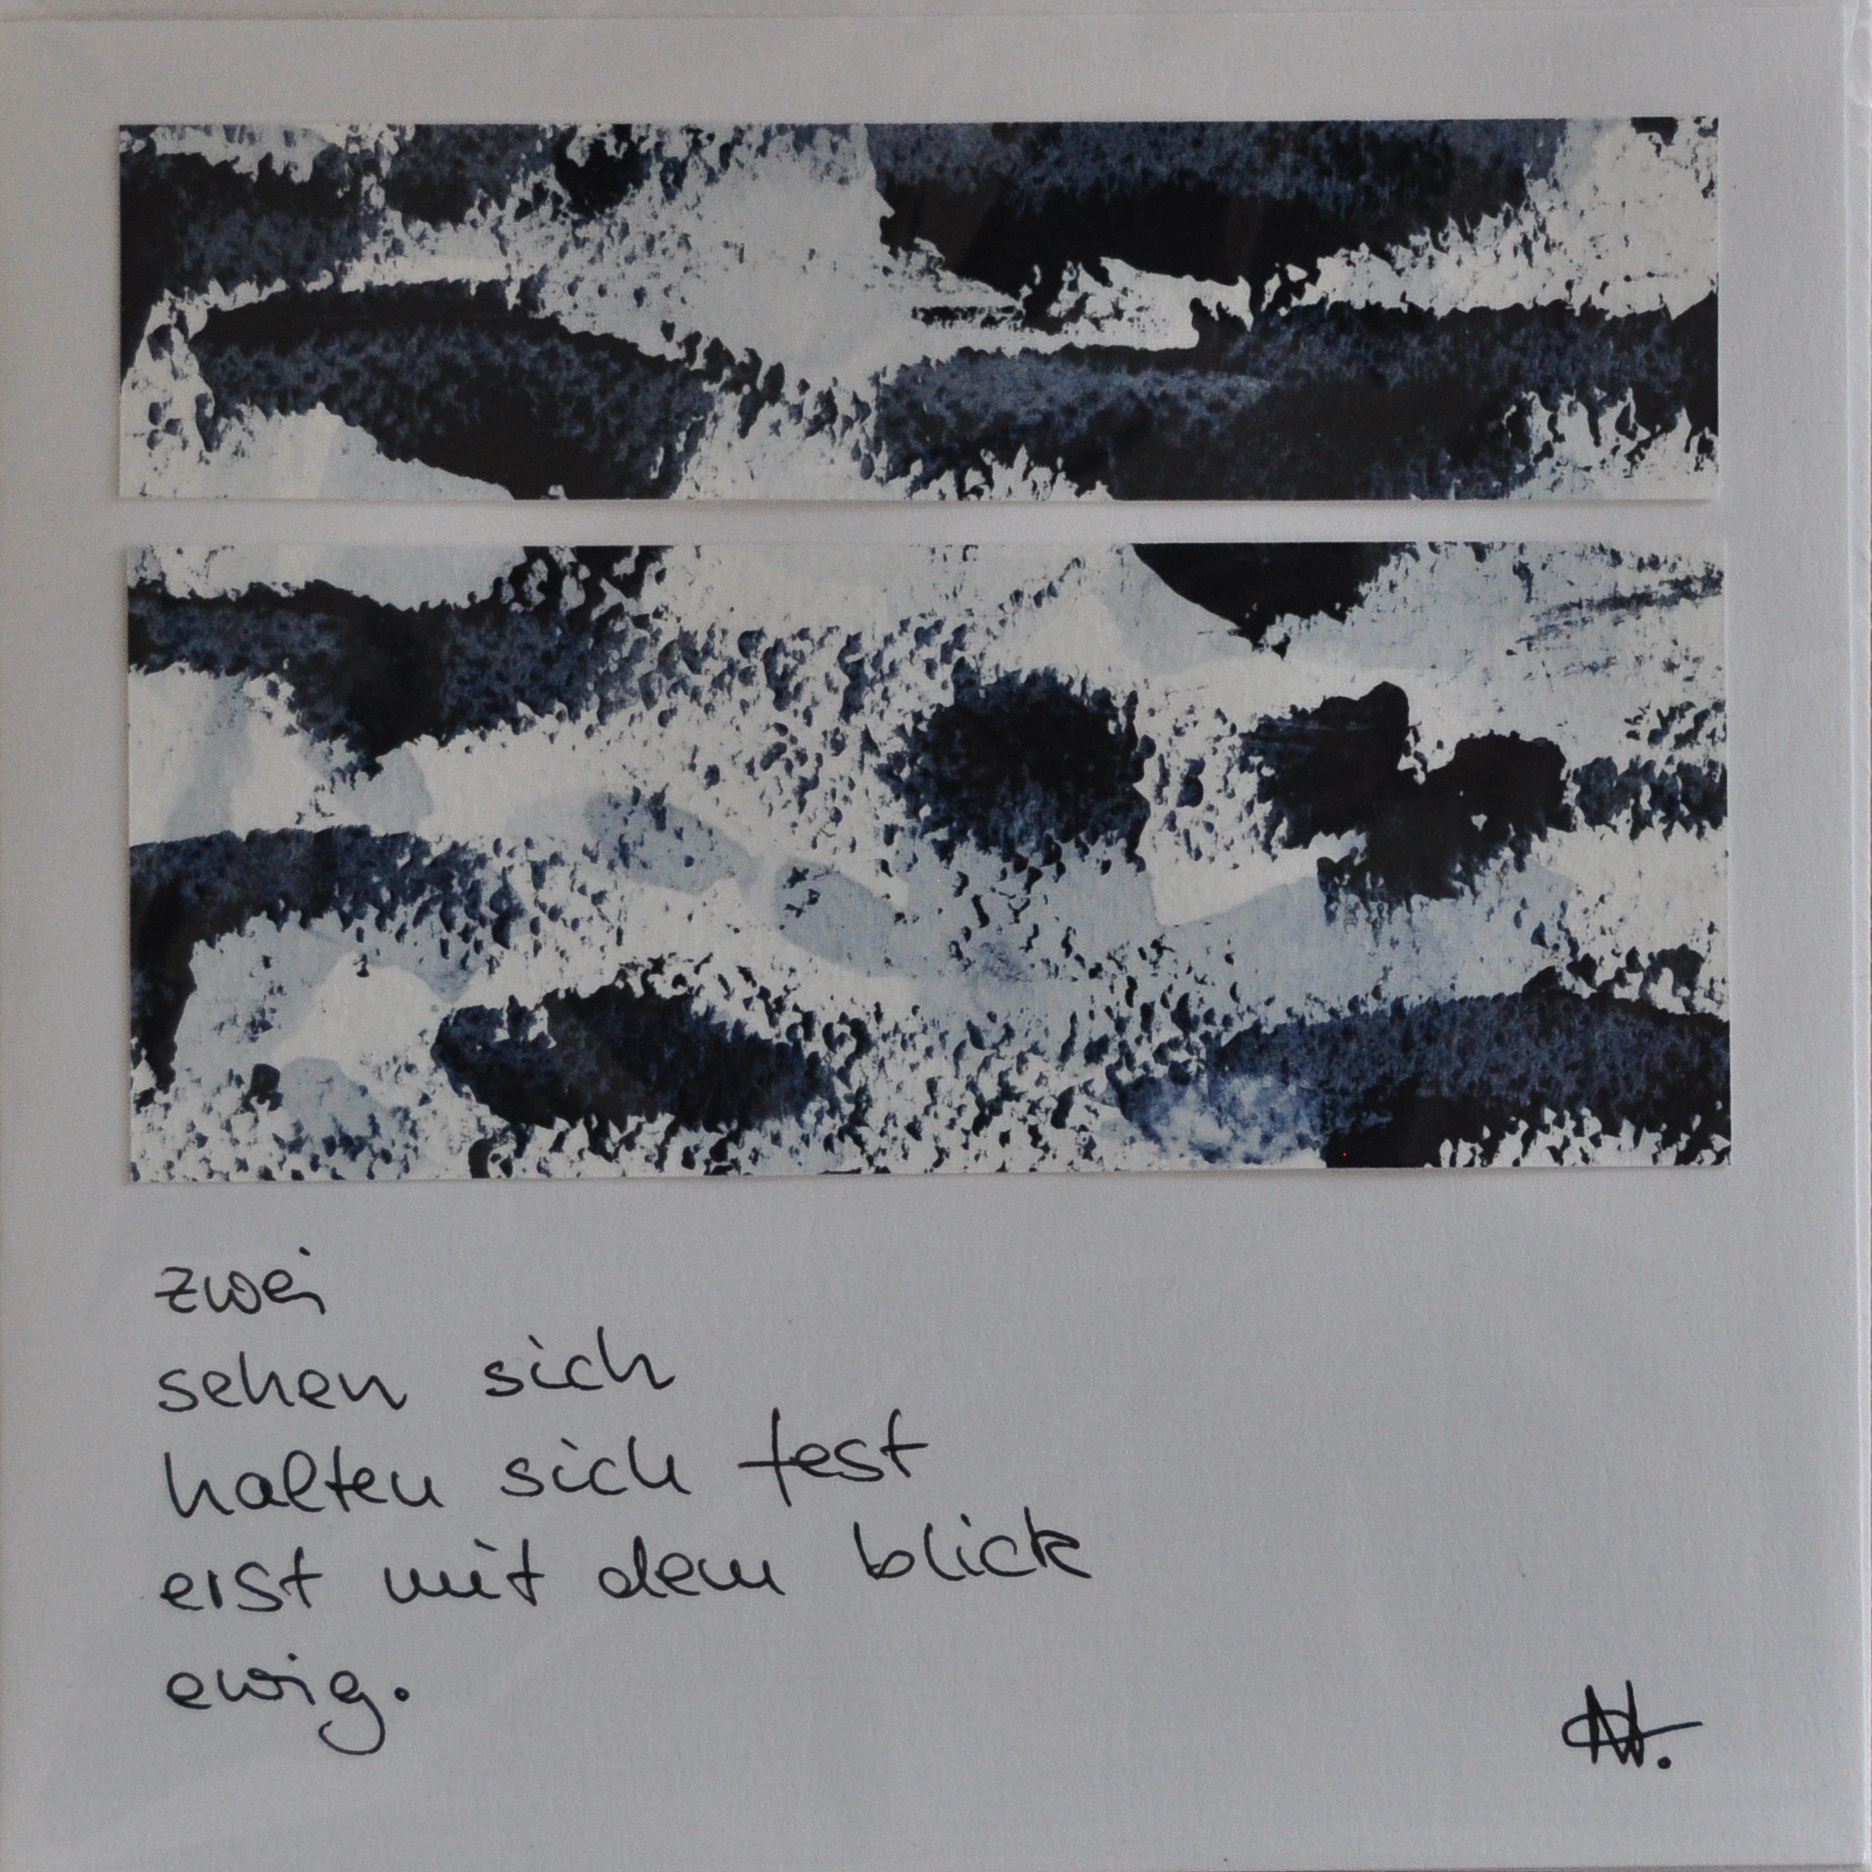 zwei
sehen sich
halten sich fest
erst mit dem blick
ewig.